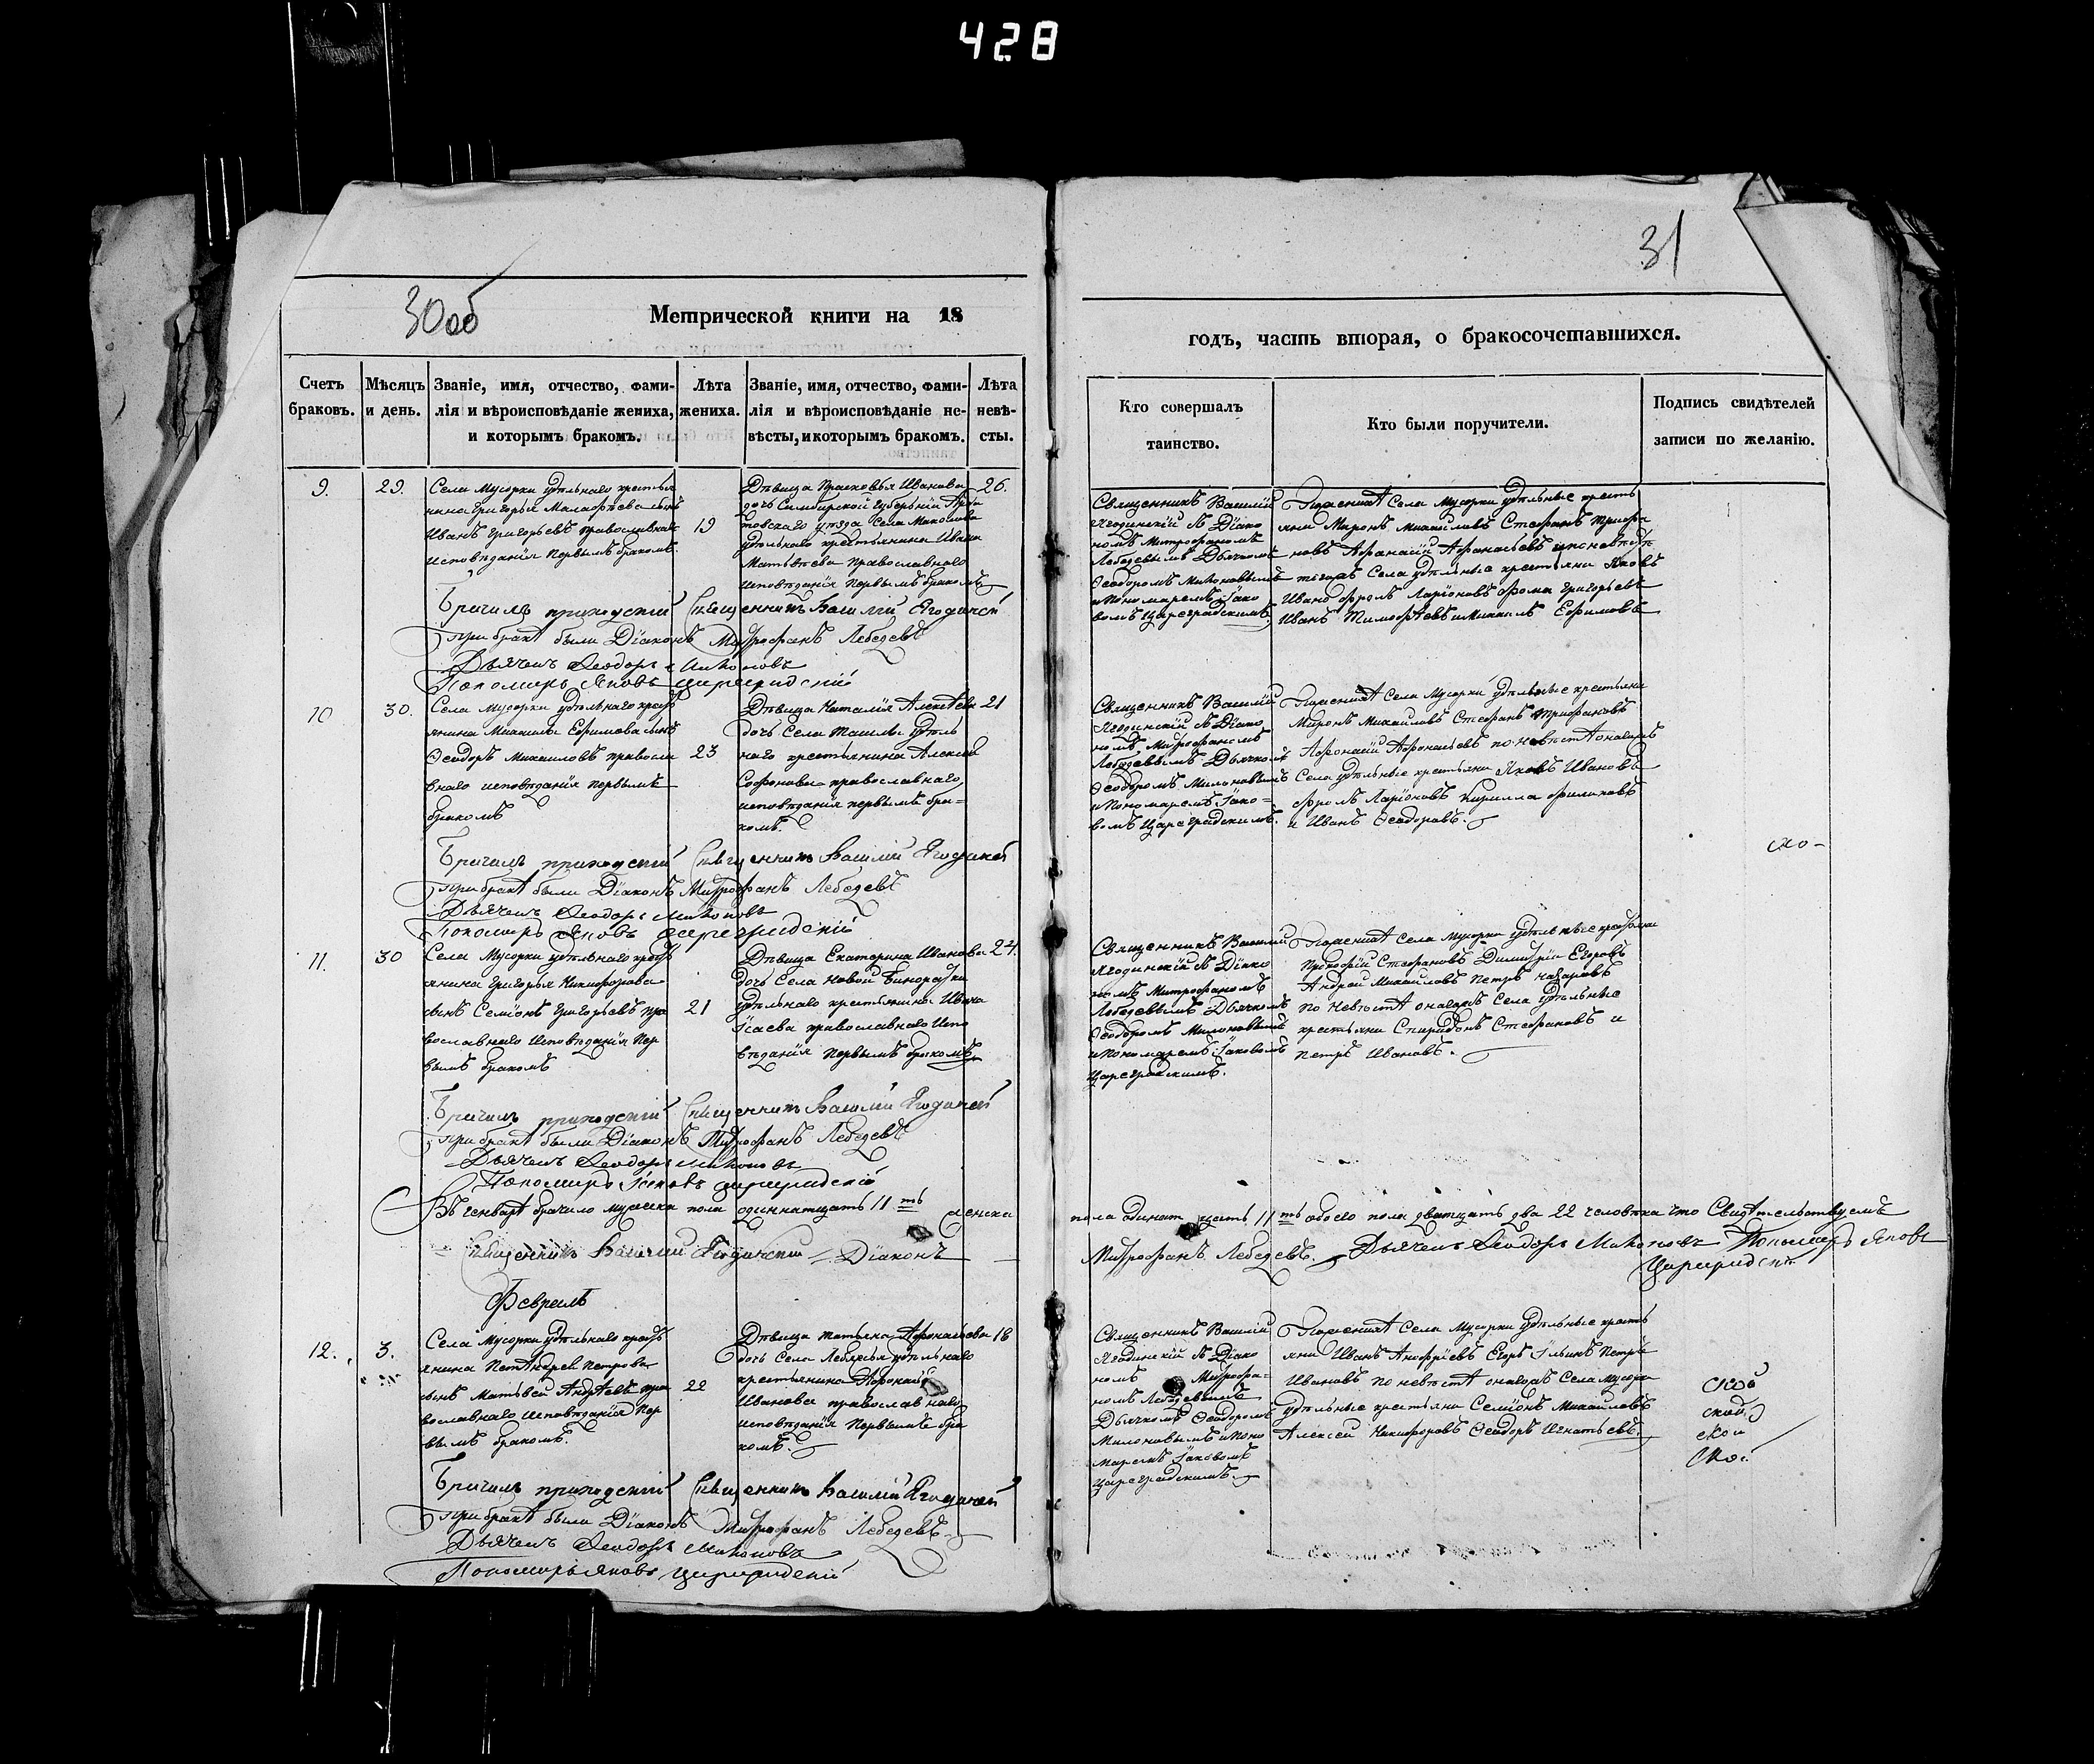 428
31
30 об
Метрической книги на 18
годъ, часть вторая, о бракосочетавшихся.
Счетъ браковъ.
Мѣсяцъ и день.
Званіе, имя, отчество, фами-
лія и вѣроисповѣданіе жениха,
и которымъ бракомъ.
Лѣта жениха.
Званіе, имя, отчество, фами-
лія и вѣроисповѣданіе не-
вѣсты, и которымъ бракомъ.
Лѣта невѣ-
сты.
Кто совершалъ
таинство.
Кто были поручители.
Подпись свидѣтелей
записи по желанію.
9.
29.
Села Мусорки удѣльнаго крестья
нина Григорья сынъ
Иванъ Григорьевъ православнаго
исповѣданія первымъ бракомъ
19
Дѣвица Прасковья Иванова
дочь Симбирской Губерніи
уѣзда Села
удѣльнаго крестьянина Ивана
Матвѣева православнаго
исповѣданія первымъ бракомъ
26.
Священникъ Василій
Ягодинскій съ Діако
номъ Митрофаномъ
Лебедевымъ Дьячкомъ
Ѳеодоромъ
и Пономаремъ Іако
вомъ Цареградскимъ.
По женихѣ Села Мусорки удѣльные кресть
яне Миронъ Михайловъ Стефанъ Трифо
новъ Афанасій Афанасьевъ по невѣстѣ
Села удѣльные крестьяни Яковъ
Ивановъ Фролъ Ларіоновъ Фома Григорьевъ
Иванъ Тимофѣевъ и Михаилъ Ефимовъ
приходскій Священникъ Василій Ягодинскій
при бракѣ были Діаконъ Митрофанъ Лебедевъ
Дьячекъ Ѳеодоръ
Пономарь Яковъ Цареградскій
10
30.
Села Мусорки удѣльнаго крест
янина Михаила Ефимова сынъ
Ѳеодоръ Михаиловъ правосла
внаго исповѣданія первымъ
бракомъ
23
Дѣвица Наталія Алексѣева
дочь Села Ташлы удѣль
наго крестьянина Алексѣя
Софонова православнаго
исповѣданія первымъ бра=
комъ.
21
Священникъ Василій
Ягодинскій съ Діако
номъ Митрофаномъ
Лебедевымъ Дьячкомъ
Ѳеодоромъ
и Пономаремъ Іако=
вомъ Цареградскимъ.
По женихѣ Села Мусорки удѣльные крестьяни
Миронъ Михаиловъ Стефанъ Трифановъ
Афонасій Афонасьевъ по невѣстѣ онагожъ
Села удѣльные крестьяни Яковъ Ивановъ
Фролъ Ларіоновъ Кирилла Филиповъ
и Иванъ Ѳеодоровъ.
приходскій Священникъ Василій Ягодинскій
При бракѣ были Діаконъ Митрофанъ Лебедевъ
Дьячекъ Ѳеодоръ
Пономарь Яковъ Цареградскій
11.
30
Села Мусорки удѣльнаго крест
янина Григорья Никифорова
сынъ Семіонъ Григорьевъ пра
вославнаго исповѣданія пер
вымъ бракомъ
21
Дѣвица Екатерина Иванова
дочь Села Новой Бинорадки
удѣльнаго крестьянина Ивана
Исаева православнаго испо
вѣданія первымъ бракомъ
24.
Священникъ Василій
Ягодинскій съ Діако
номъ Митрофаномъ
Лебедевымъ Дьячкомъ
Ѳеодоромъ
и Пономаремъ Іаковомъ
Цареградскимъ.
По женихѣ Села Мусорки удѣльные крестьяни
Прокофій Стефановъ Димитрій Егоровъ
Андрей Михаиловъ Петръ Назаровъ
по невѣстѣ онагожъ Села удѣльные
крестьяни Спиридонъ Стефановъ и
Петръ Ивановъ.
приходскій Священникъ Василій Ягодинскій
При бракѣ были Діаконъ Митрофанъ Лебедевъ
Дьячекъ Ѳеодоръ
Пономарь Іаковъ Цареградскій
Въ Генварѣ брачило мужеска пола одиннатцать 11ть женска
пола одинатцать 11ть обоего пола дватцать два 22 человѣка что Свидѣтельствуемъ
Священникъ Василій Ягодинскій Діаконъ
Митрофанъ Лебедевъ. Дьячекъ Ѳеодоръ Пономарь Яковъ
Цареградскій
Февраль
12.
3.
Села Мусорки удѣльнаго крест
янина Андрея Петрова
сынъ Матвей Андрѣевъ пра
вославнаго исповѣданія пер
вымъ бракомъ.
22
Дѣвица Татьяна Афонасьева
дочь Села Лебяжья удѣльнаго
крестьянина Афонасія
Иванова православнаго
исповѣданія первымъ бра
комъ.
18
Священникъ Василій
Ягодинскій съ Діако
номъ Митрофа=
номъ Лебедевымъ
Дьячкомъ Ѳеодоромъ
и Поно
маремъ Іаковомъ
Цареградскимъ.
По женихѣ Села Мусорки удѣльные кресть
яни Иванъ Егоръ Ильинъ Петръ
Ивановъ по невѣстѣ онагожъ Села Мусорки
удѣльные крестьяни Семіонъ Михаиловъ
Алексей Никифоровъ Ѳеодоръ Игнатьевъ.
приходскій Священникъ Василій Ягодинскій
При бракѣ были Діаконъ Митрофанъ Лебедевъ
Дьячекъ Ѳеодоръ
Пономарь Яковъ Цареградскій